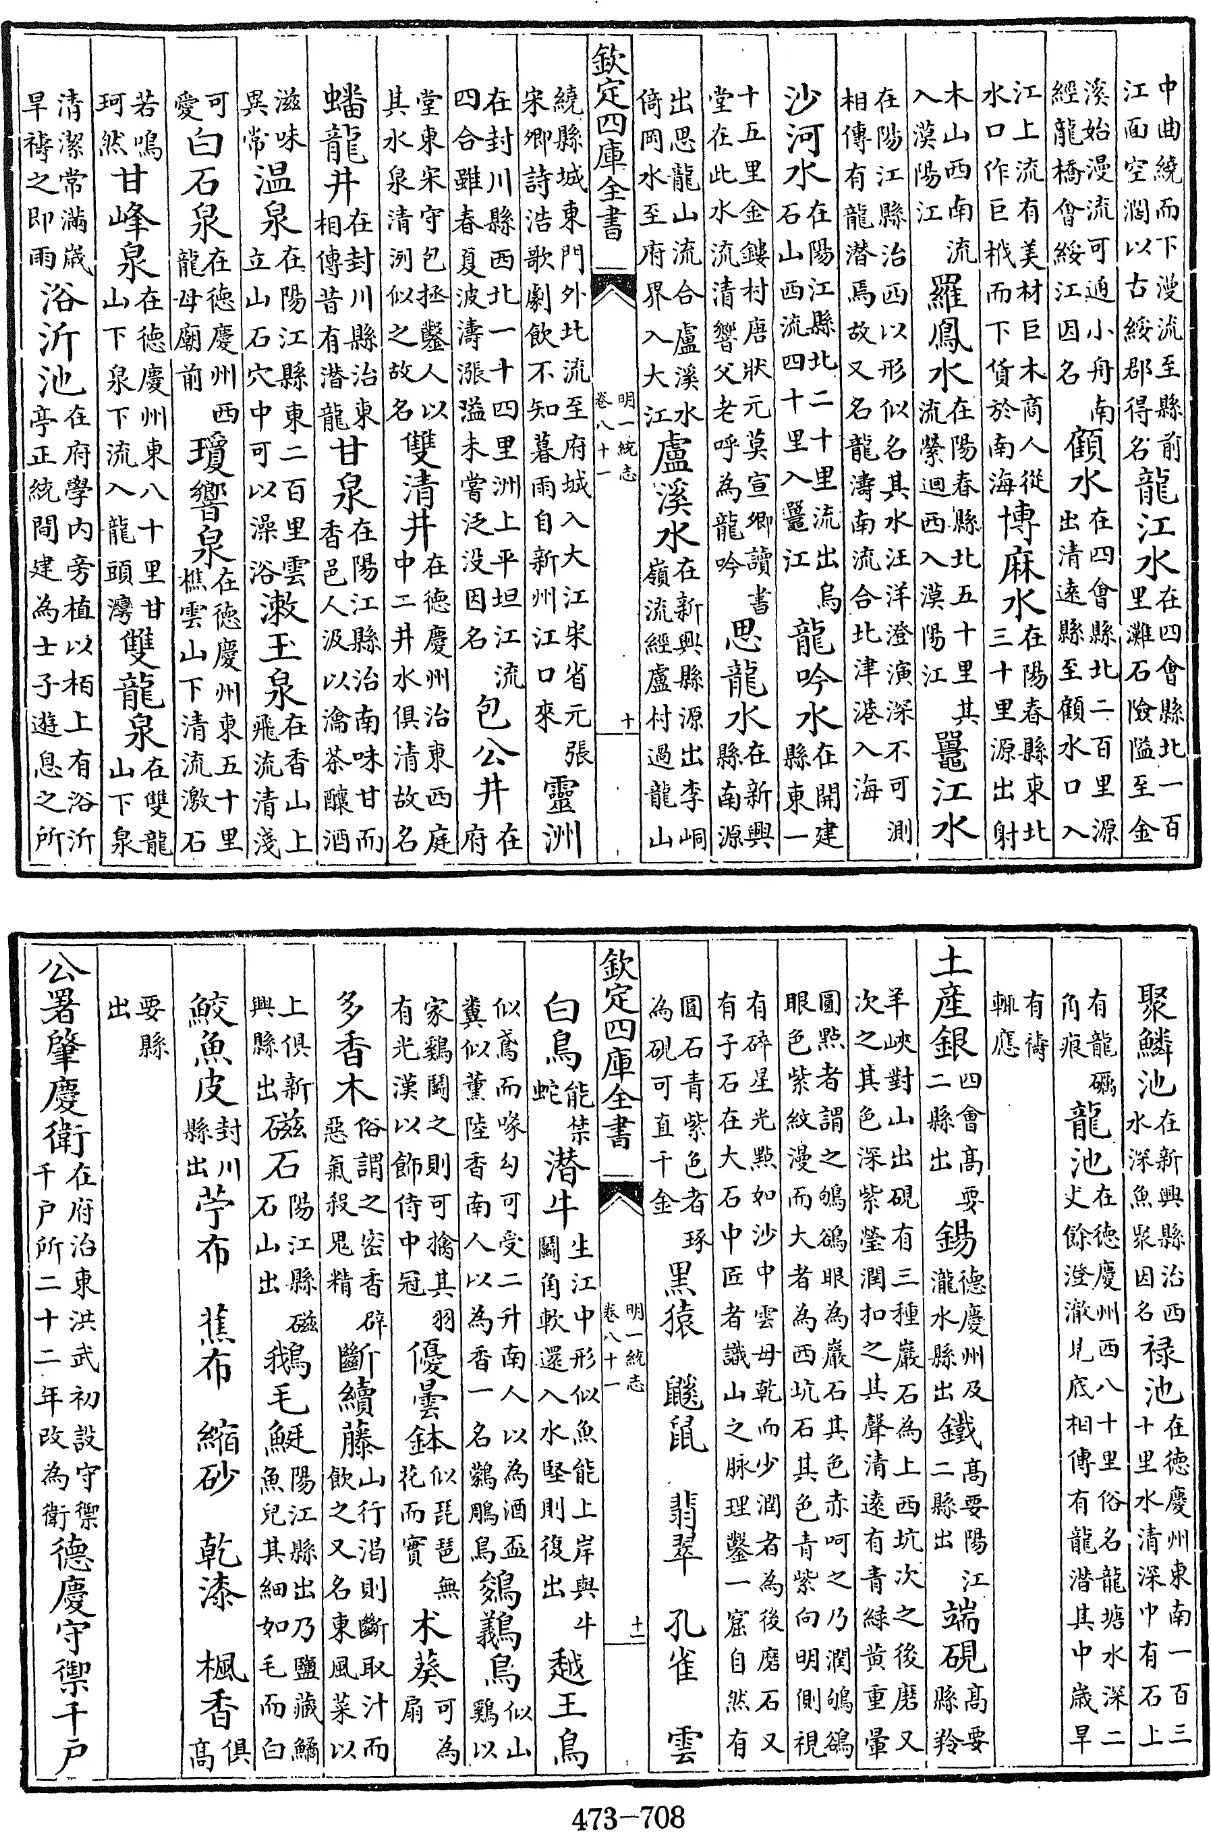 中曲繞而下漫流至縣前江面空濶以古綏郡得名龍江水在四會縣北一百里灘石險隘至金
溪始漫流可通小舟南經龍橋會綏江因名顧水在四會縣北二百里源出清遠縣至顧水口入
江上流有美材巨木商人從水口作巨栰而下貨於南海博麻水在陽春縣東北三十里源出射
木山西南流入漠陽江羅鳳水在陽春縣北五十里其流縈迴西入漠陽江鼉江水
在陽江縣治西以形似名其水汪洋澄演深不可測相傳有龍潛焉故又名龍濤南流合北津港入海
沙河水在陽江縣北二十里流出烏石山西流四十里入鼉江龍吟水在開建縣東一
十五里金鏤村唐狀元莫宣卿讀書堂在此水流清響父老呼為龍吟思龍水在新興縣南源
出思龍山流合盧溪水倚岡水至府界入大江盧溪水在新興縣源出李峒嶺流經盧村過龍山
欽定四庫全書
明一統志
卷八十一
十
繞縣城東門外北流至府城入大江宋省元張宋卿詩浩歌劇飲不知暮雨自新州江口來靈洲
在封川縣西北一十四里洲上平坦江流四合雖春夏波濤漲溢未嘗泛没因名包公井在府
堂東宋守包拯鑿人以其水泉清洌似之故名雙清井在德慶州治東西庭中二井水俱清故名
蟠龍井在封川縣治東相傳昔有潛龍甘泉在陽江縣治南味甘而香邑人汲以瀹茶釀酒
滋味異常温泉在陽江縣東二百里雲立山石穴中可以澡浴漱玉泉在香山上飛流清淺
可愛白石泉在德慶州西龍母廟前瓊響泉在德慶州東五十里樵雲山下清流激石
若鳴珂然甘峰泉在德慶州東八十里甘山下泉下流入龍頭灣雙龍泉在雙龍山下泉
清潔常滿歲旱禱之即雨浴沂池在府學內旁植以栢上有浴沂亭正統間建為士子遊息之所
聚鱗池在新興縣治西水深魚聚因名禄池在德慶州東南一百三十里水清深中有一石上
有龍角痕龍池在德慶州西八十里俗名龍塘水深二丈餘澄澈見底相傳有龍潛其中歲旱
有禱輒應
土産銀四會高要二縣出錫德慶州及瀧水縣出鐵高要陽江二縣出端硯高要縣羚
羊峽對山出硯有三種巖石為上西坑次之後磨又次之其色深紫瑩潤扣之其聲清遠有青緑黄重暈
圓㸃者謂之鴝鵒眼為巖石其色赤呵之乃潤鴝鵒眼色紫紋漫而大者為西坑石其色青紫向明側視
有碎星光㸃如沙中雲母乾而少潤者為後磨石又有子石在大石中匠者識山之脉理鑿一窟自然有
圓石青紫色者琢為硯可直千金黑猿 鼶鼠 翡翠 孔雀 雲
欽定四庫全書
明一統志
卷八十一
十一
白鳥能禁蛇潛牛生江中形似魚能上岸與牛鬭角軟還入水堅則復出越王鳥
似鳶而喙勾可受二升南人以為酒盃糞似薰陸香南人以為香一名鶴鵰鳥鵕鸃鳥似山鷄以
家鷄鬭之則可擒其羽有光漢以飾侍中冠優曇鉢似琵琶無花而實术葵可為扇
多香木俗謂之密香辟惡氣殺鬼精斷續藤山行渴則斷取汁而飲之又名東風菜以
上俱新興縣出磁石陽江縣磁石山出鵝毛鯅陽江縣出乃鹽藏鱊魚兒其細如毛而白
鮫魚皮封川縣出苧布 蕉布 縮砂 乾漆 楓香俱高
要縣出
公署肇慶衛在府治東洪武初設守禦千戶所二十二年改為衛德慶守禦千戶
473-708